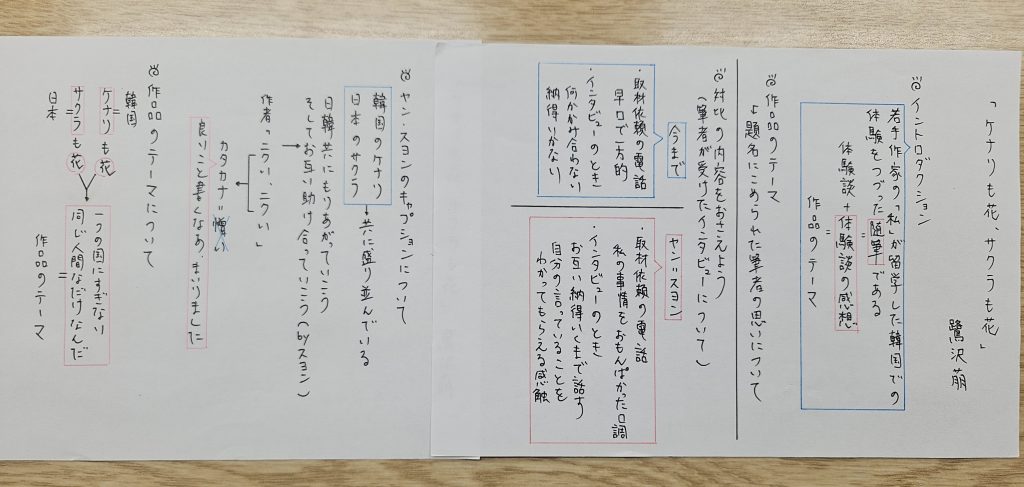 「ケナリも花、サクラも花」
鷺沢萠
イントロダクション
若手作家の「私」が留学した韓国での
体験をつづった随筆である
=
体験談+体験談の感想
=
作品のテーマ
作品のテーマ
↳題名にこめられた筆者の思いについて
対比の内容をおさえよう
(筆者が受けたインタビューについて)
今まで
・取材依頼の電話
早口で一方的
・インタビューのとき
何かかけ合わない
納得いかない
ヤン=スヨン
・取材依頼の電話
私の事情をおもんぱかった口調
・インタビューのとき
お互い納得いくまで話す
自分の言っていることを
わかってもらえる感触
ヤン=スヨンのキャプションについて
韓国のケナリ
日本のサクラ
→共に盛り並んでいる
日韓共にもりあがっていこう
そしてお互い助け合っていこう(byスヨン)
作者「ニクい、ニクい」
カタカナ=憎い
良いこと書くなあ、まいりました
作品のテーマについて
韓国
=
ケナリも花
サクラも花
=
日本
一つの国にすぎない
同じ人間なだけなんだ
=
作品のテーマ